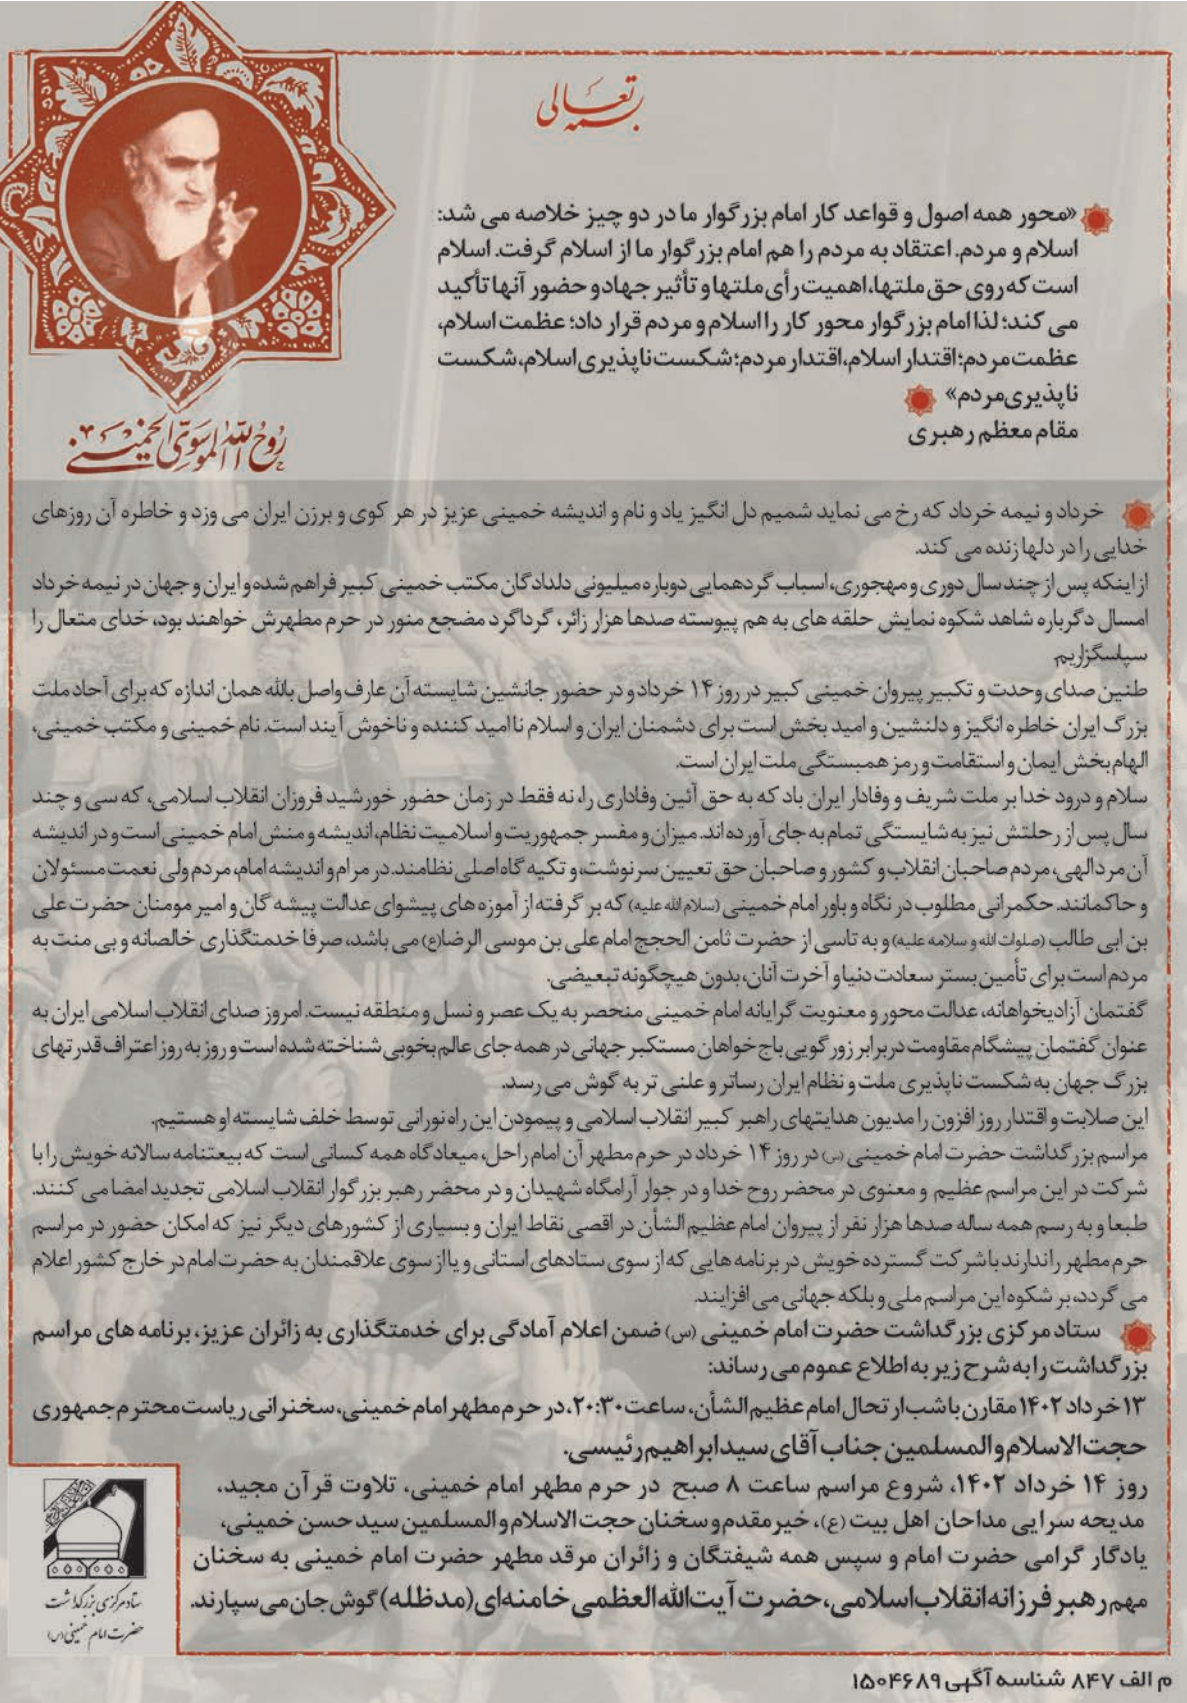 بسمه تعالی
«محور همه اصول و قواعد کار امام بزرگوار ما در دو چیز خلاصه می شد:
اسلام و مردم. اعتقاد به مردم را هم امام بزرگوار ما از اسلام گرفت. اسلام
است که روی حق ملتها، اهمیت رأی ملتها و تأثیر جهاد و حضور آنها تأکید
می کند؛ لذا امام بزرگوار محور کار را اسلام و مردم قرار داد؛ عظمت اسلام،
عظمت مردم؛ اقتدار اسلام، اقتدار مردم؛ شکست ناپذیری اسلام، شکست
ناپذیری مردم»
مقام معظم رهبری
روح الله الموسوی الخمینی
خرداد و نیمه خرداد که رخ می نماید شمیم دل انگیز یاد و نام و اندیشه خمینی عزیز در هر کوی و برزن ایران می وزد و خاطره آن روزهای
خدایی را در دلها زنده می کند.
از اینکه پس از چند سال دوری و مهجوری، اسباب گردهمایی دوباره میلیونی دلدادگان مکتب خمینی کبیر فراهم شده و ایران و جهان در نیمه خرداد
امسال دگرباره شاهد شکوه نمایش حلقه های به هم پیوسته صدها هزار زائر، گرداگرد مضجع منور در حرم مطهرش خواهند بود، خدای متعال را
سپاسگزاریم.
طنین صدای وحدت و تکبیر پیروان خمینی کبیر در روز ۱۴ خرداد و در حضور جانشین شایسته آن عارف واصل بالله همان اندازه که برای آحاد ملت
بزرگ ایران خاطره انگیز و دلنشین و امید بخش است برای دشمنان ایران و اسلام ناامید کننده و ناخوش آیند است. نام خمینی و مکتب خمینی،
الهام بخش ایمان و استقامت و رمز همبستگی ملت ایران است.
سلام و درود خدا بر ملت شریف و وفادار ایران باد که به حق آئین وفاداری را، نه فقط در زمان حضور خورشید فروزان انقلاب اسلامی، که سی و چند
سال پس از رحلتش نیز به شایستگی تمام به جای آورده اند. میزان و مفسر جمهوریت و اسلامیت نظام، اندیشه و منش امام خمینی است و در اندیشه
آن مرد الهی، مردم صاحبان انقلاب و کشور و صاحبان حق تعیین سرنوشت، و تکیه گاه اصلی نظامند. در مرام و اندیشه امام، مردم ولی نعمت مسئولان
و حاکمانند. حکمرانی مطلوب در نگاه و باور امام خمینی (سلام الله علیه) که بر گرفته از آموزه های پیشوای عدالت پیشه گان و امیر مومنان حضرت علی
بن ابی طالب (صلوات الله و سلامه علیه) و به تاسی از حضرت ثامن الحجج امام علی بن موسی الرضا(ع) می باشد، صرفا خدمتگذاری خالصانه و بی منت به
مردم است برای تأمین بستر سعادت دنیا و آخرت آنان، بدون هیچگونه تبعیضی.
گفتمان آزادیخواهانه، عدالت محور و معنویت گرایانه امام خمینی منحصر به یک عصر و نسل و منطقه نیست. امروز صدای انقلاب اسلامی ایران به
عنوان گفتمان پیشگام مقاومت در برابر زورگویی باج خواهان مستکبر جهانی در همه جای عالم بخوبی شناخته شده است و روز به روز اعتراف قدرتهای
بزرگ جهان به شکست ناپذیری ملت و نظام ایران رساتر و علنی تر به گوش می رسد.
این صلابت و اقتدار روز افزون را مدیون هدایتهای راهبر کبیر انقلاب اسلامی و پیمودن این راه نورانی توسط خلف شایسته او هستیم.
مراسم بزرگداشت حضرت امام خمینی (س) در روز ۱۴ خرداد در حرم مطهر آن امام راحل، میعادگاه همه کسانی است که بیعتنامه سالانه خویش را با
شرکت در این مراسم عظیم و معنوی در محضر روح خدا و در جوار آرامگاه شهیدان و در محضر رهبر بزرگوار انقلاب اسلامی تجدید امضا می کنند.
طبعا و به رسم همه ساله صدها هزار نفر از پیروان امام عظیم الشأن در اقصی نقاط ایران و بسیاری از کشورهای دیگر نیز که امکان حضور در مراسم
حرم مطهر را ندارند با شرکت گسترده خویش در برنامه هایی که از سوی ستادهای استانی و یا از سوی علاقمندان به حضرت امام در خارج کشور اعلام
می گردد، بر شکوه این مراسم ملی و بلکه جهانی می افزایند.
ستاد مرکزی بزرگداشت حضرت امام خمینی (س) ضمن اعلام آمادگی برای خدمتگذاری به زائران عزیز، برنامه های مراسم
بزرگداشت را به شرح زیر به اطلاع عموم می رساند:
۱۳ خرداد ۱۴۰۲ مقارن با شب ارتحال امام عظیم الشأن، ساعت ۲۰:۳۰، در حرم مطهر امام خمینی، سخنرانی ریاست محترم جمهوری
حجت الاسلام والمسلمین جناب آقای سید ابراهیم رئیسی.
روز ۱۴ خرداد ۱۴۰۲، شروع مراسم ساعت ۸ صبح در حرم مطهر امام خمینی، تلاوت قرآن مجید،
مدیحه سرایی مداحان اهل بیت (ع)، خیر مقدم و سخنان حجت الاسلام والمسلمین سید حسن خمینی،
یادگار گرامی حضرت امام و سپس همه شیفتگان و زائران مرقد مطهر حضرت امام خمینی به سخنان
مهم رهبر فرزانه انقلاب اسلامی، حضرت آیت الله العظمی خامنه ای (مدظله) گوش جان می سپارند.
ستاد مرکزی بزرگداشت
حضرت امام خمینی (س)
م الف ۸۴۷ شناسه آگهی ۱۵۰۴۶۸۹